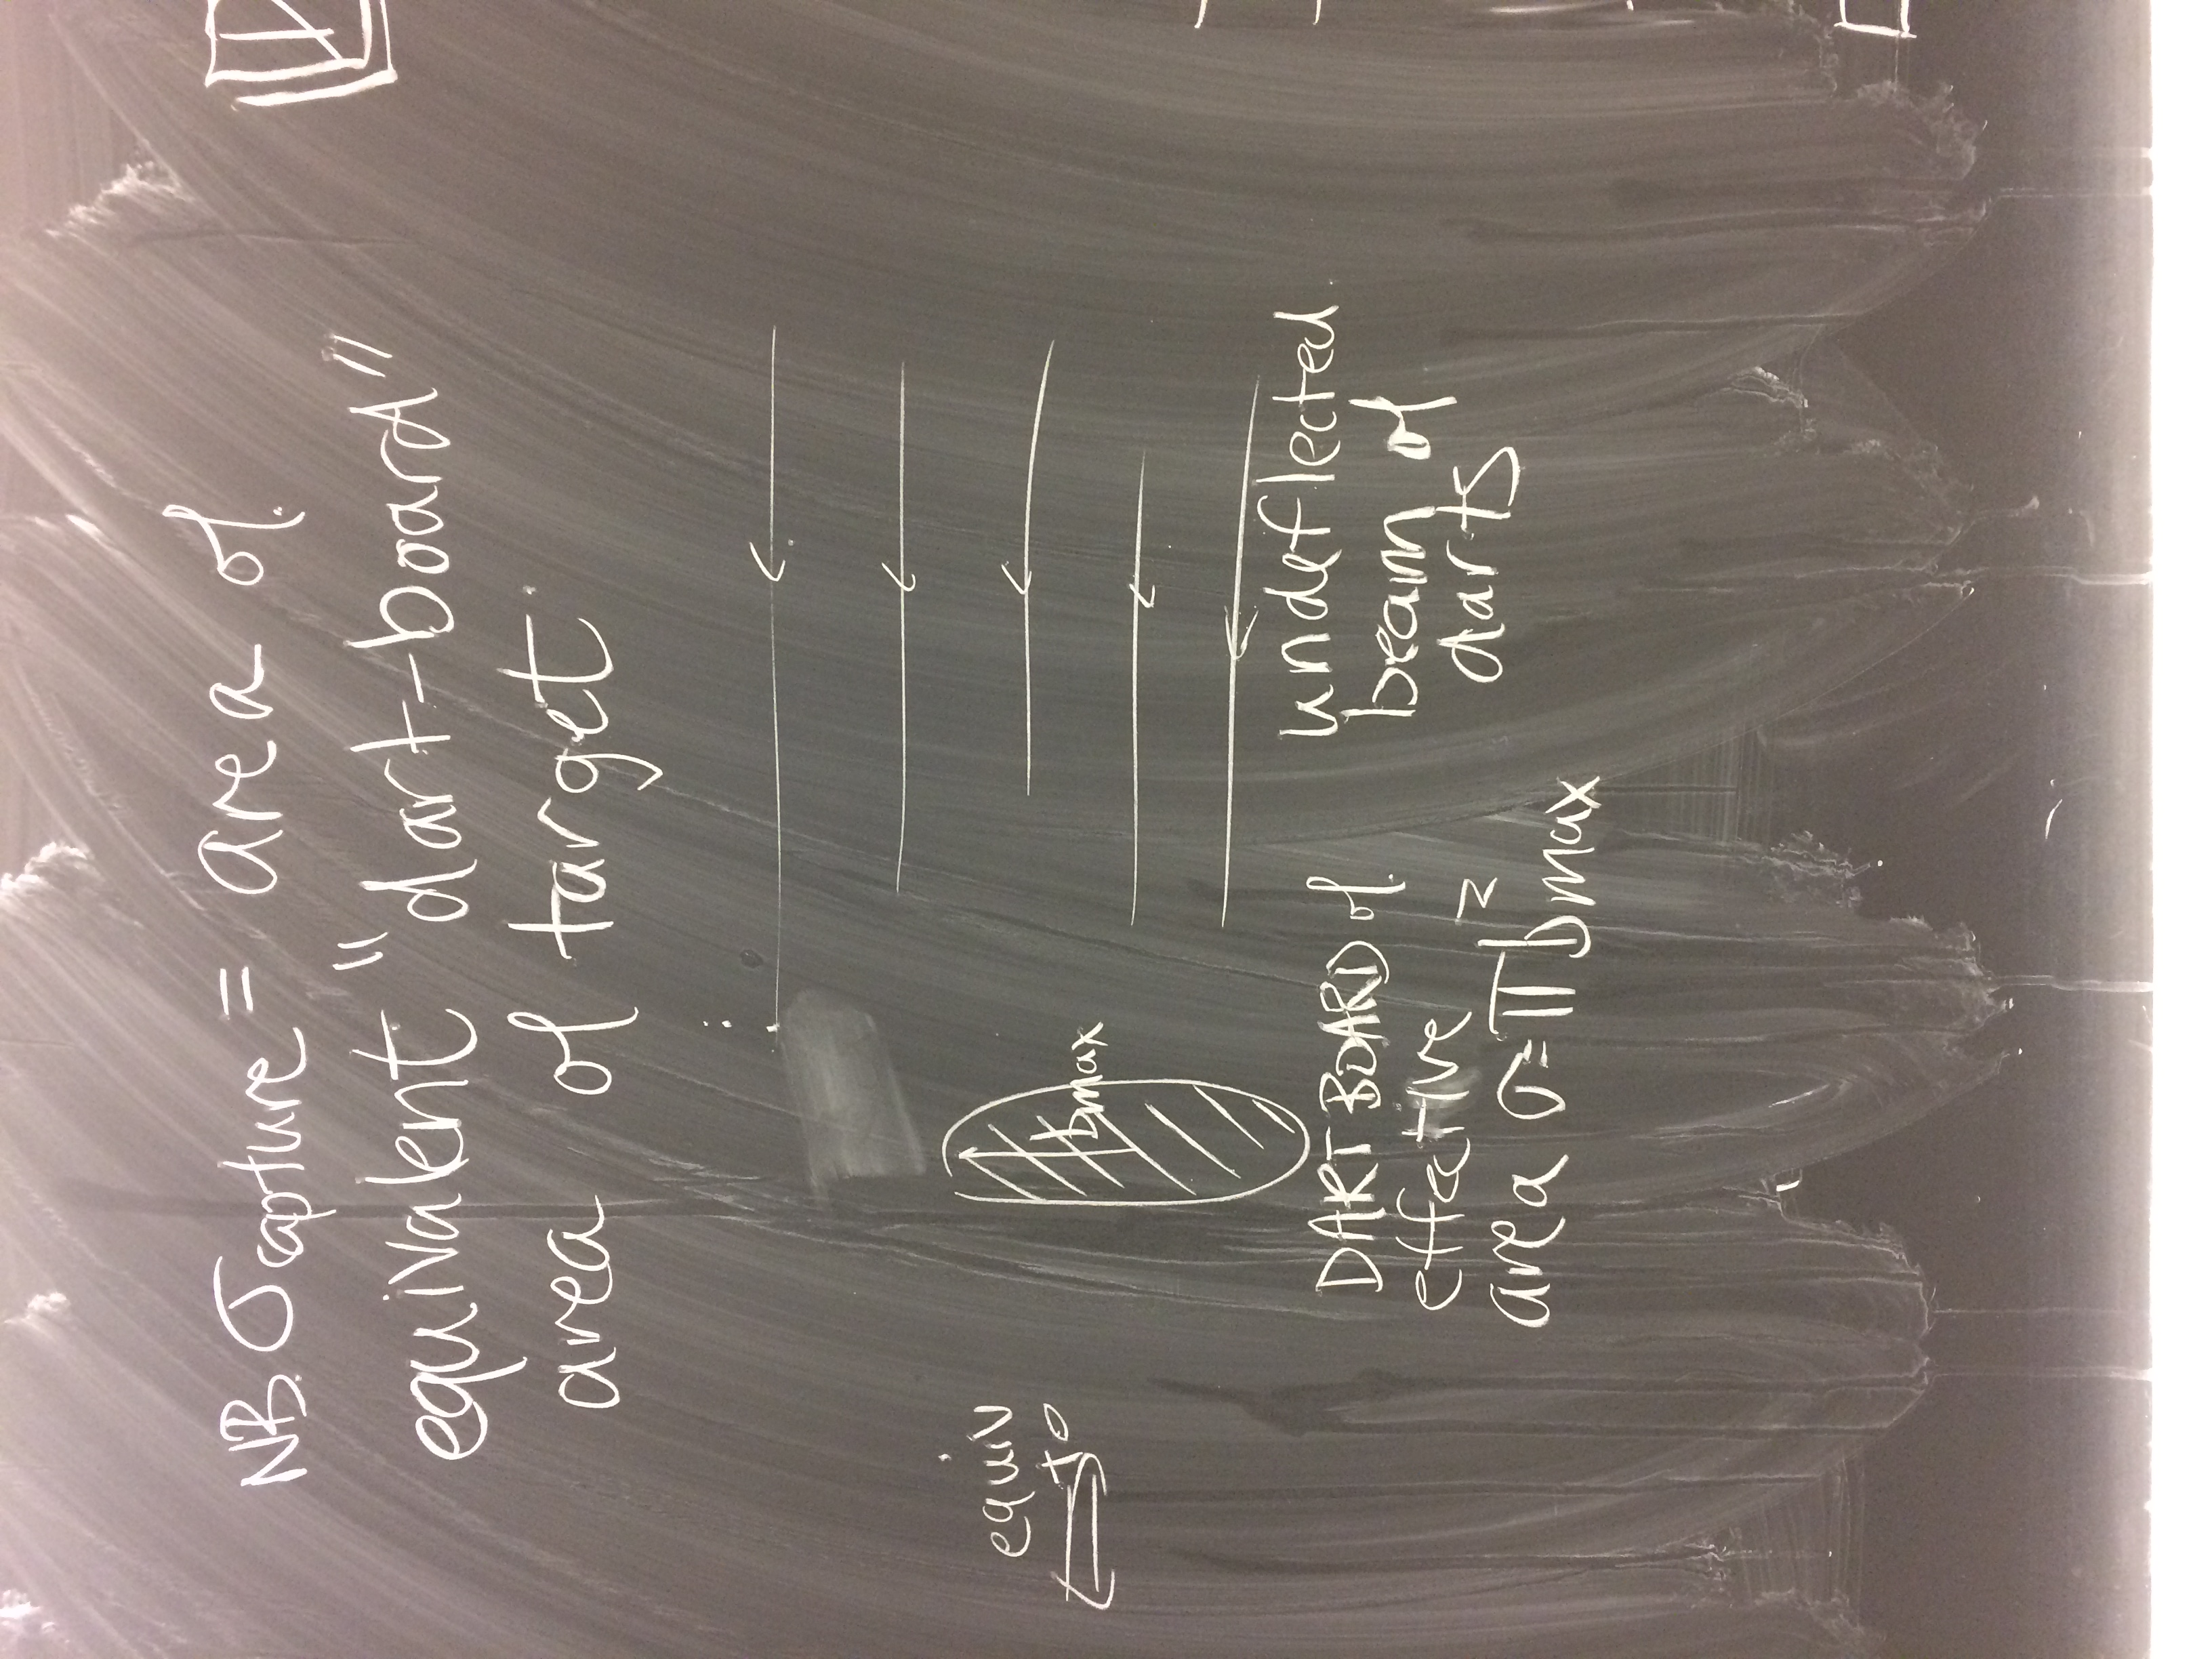 NB. σcapture = area of
equivalent "dart-board"
area of target.
equiv
to
bmax
DARTBOARD of
effective
area σ = πb²max
undeflected
beam of
darts